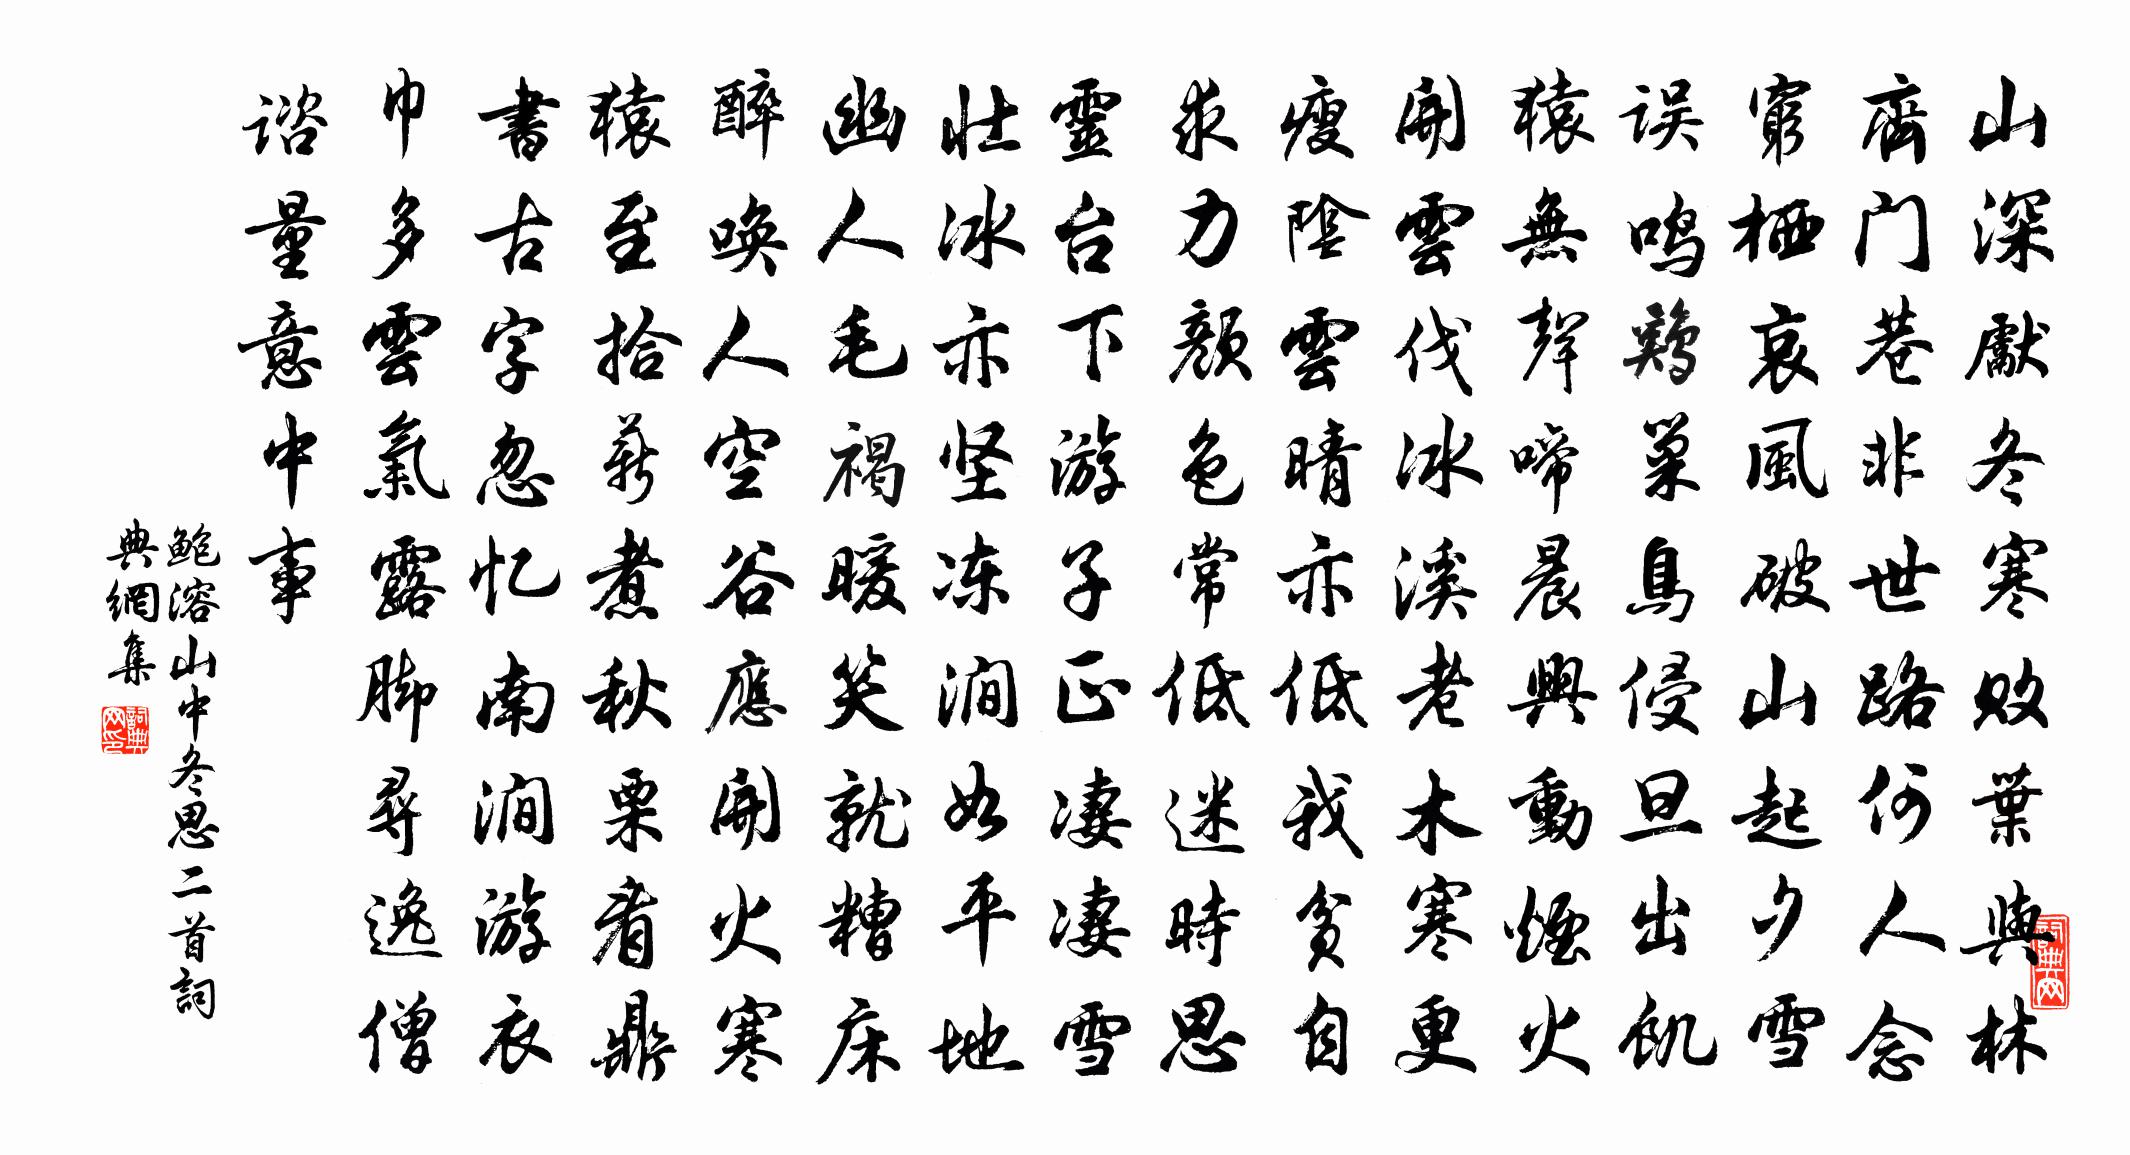 山深厭冬寒败葉與林
齊门巷非世路何人念
窮栖哀風破山起夕雪
误鸣鷄巢鳥侵旦出飢
猿無聲啼晨興動煙火
開雲伐冰溪老木寒更
瘦陰雲晴亦低我贫自
求力顔色常低迷時思
靈台下游子正凄凄雪
壮冰亦坚冻涧如平地
幽人毛褐暖笑就糟床
醉唤人空谷應開火寒
猿至拾薪煮秋栗看鼎
書古字忽忆南涧游衣
巾多雲氣露脚尋逸僧
谘量意中事
鮑溶山中冬思二首詞
典網集
詞典网
詞典网印